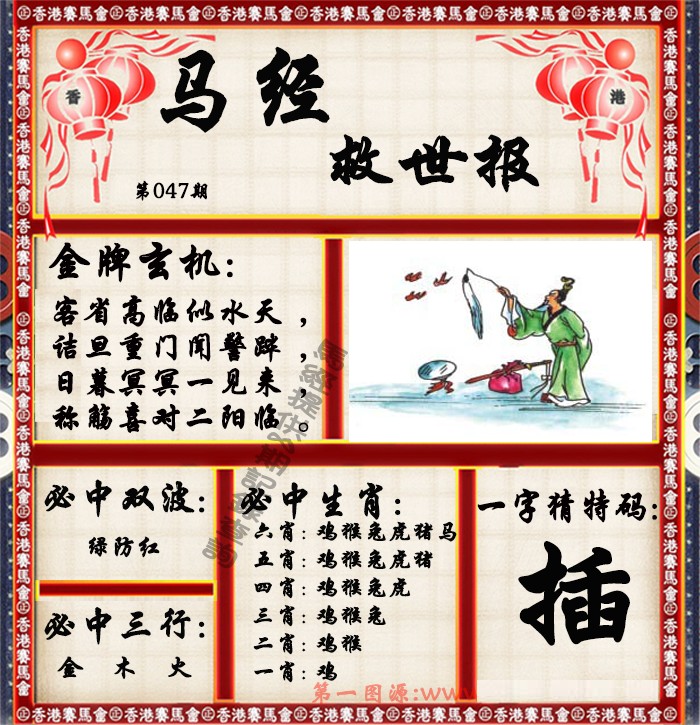 香港賽馬會
香
港
马经
救世报
第047期
金牌玄机:
客省高临似水天，
诘旦重门闻警跸，
日暮冥冥一见来，
称觞喜对二阳临。
必中双波:
绿防红
必中三行:
金 木 火
必中生肖:
六肖:鸡猴兔虎猪马
五肖:鸡猴兔虎猪
四肖:鸡猴兔虎
三肖:鸡猴兔
二肖:鸡猴
一肖:鸡
一字猜特码:
插
第一图源:www